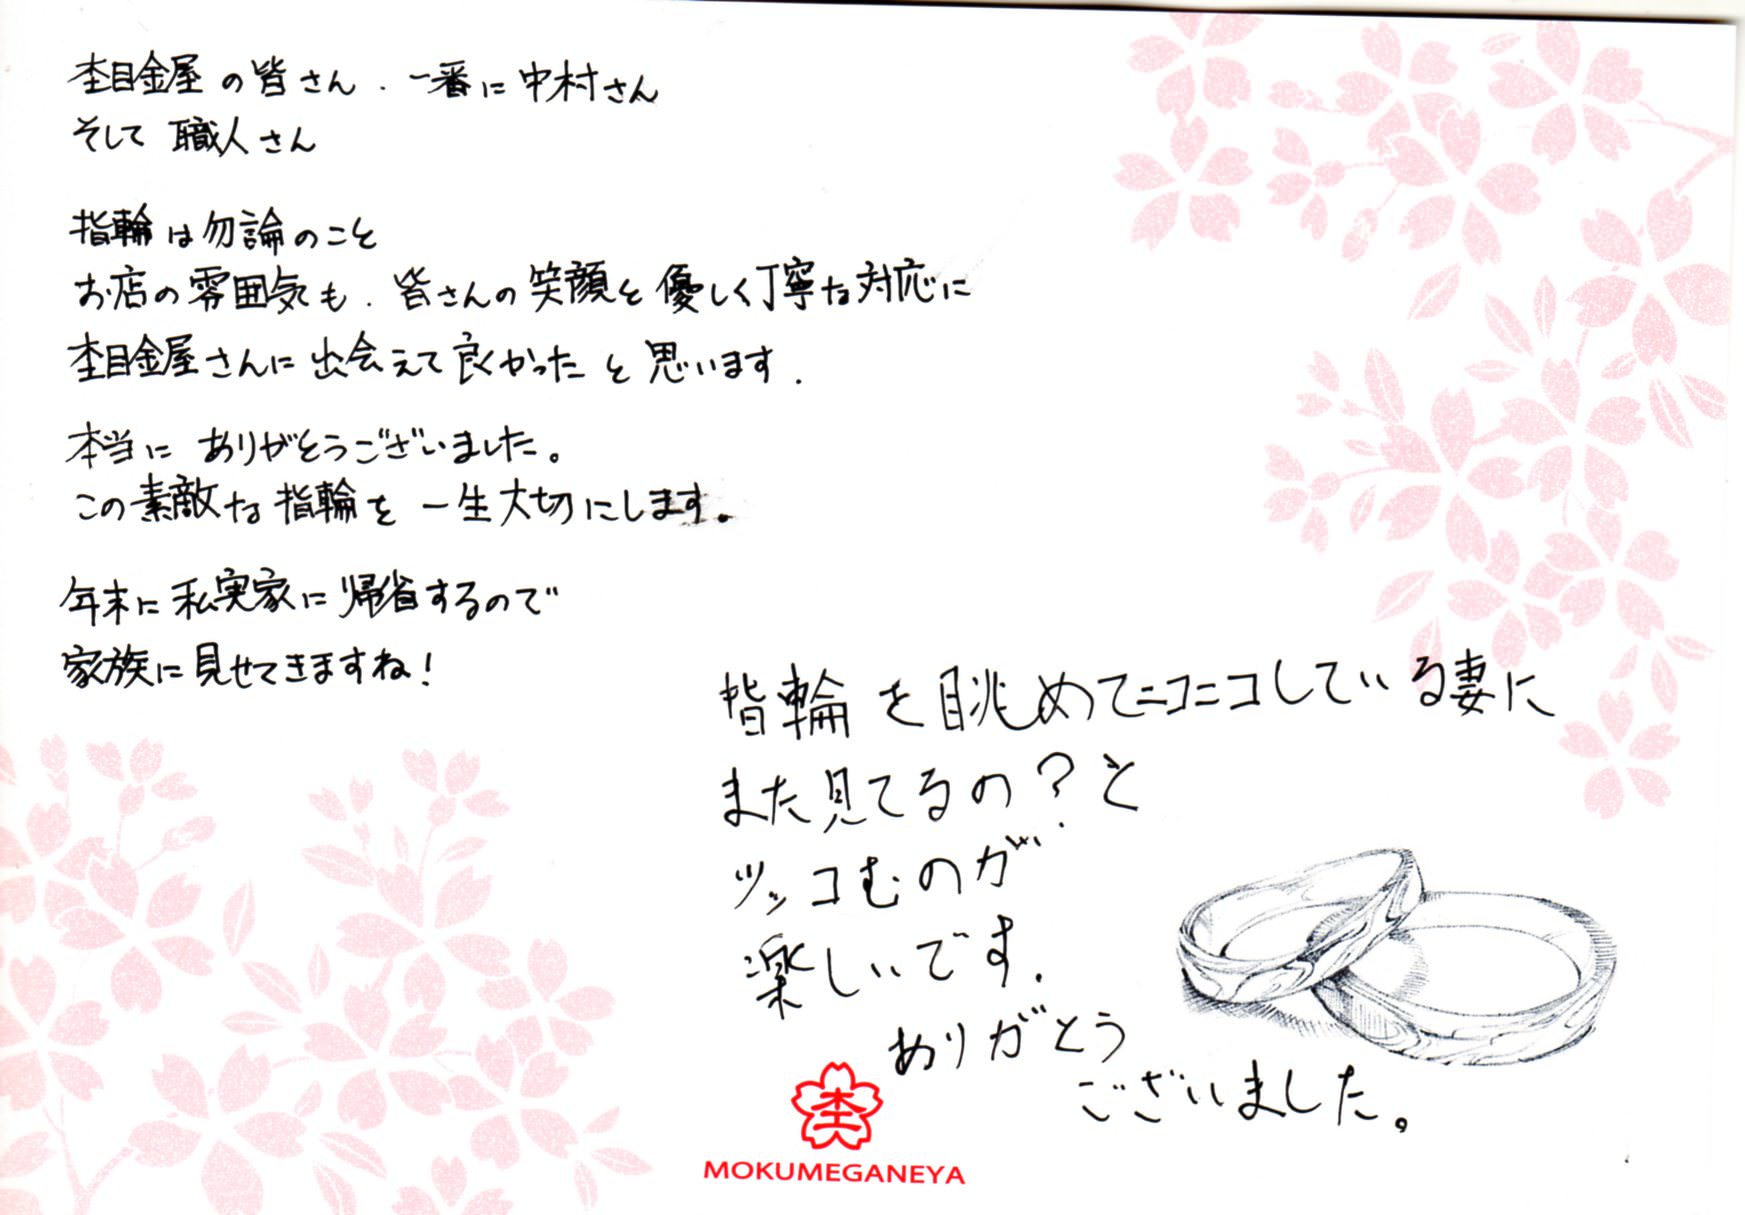 杢目金屋の皆さん．一番に中村さん
そして職人さん
指輪は勿論のこと
お店の雰囲気も．皆さんの笑顔と優しく丁寧な対応に
杢目金屋さんに出会えて良かったと思います．
本当にありがとうございました。
この素敵な指輪を一生大切にします。
年末に私実家に帰省するので
家族に見せてきますね！
指輪を眺めてニコニコしている妻に
また見てるの？と
ツッコむのが
楽しいです．
ありがとう
ございました。
杢
MOKUMEGANEYA